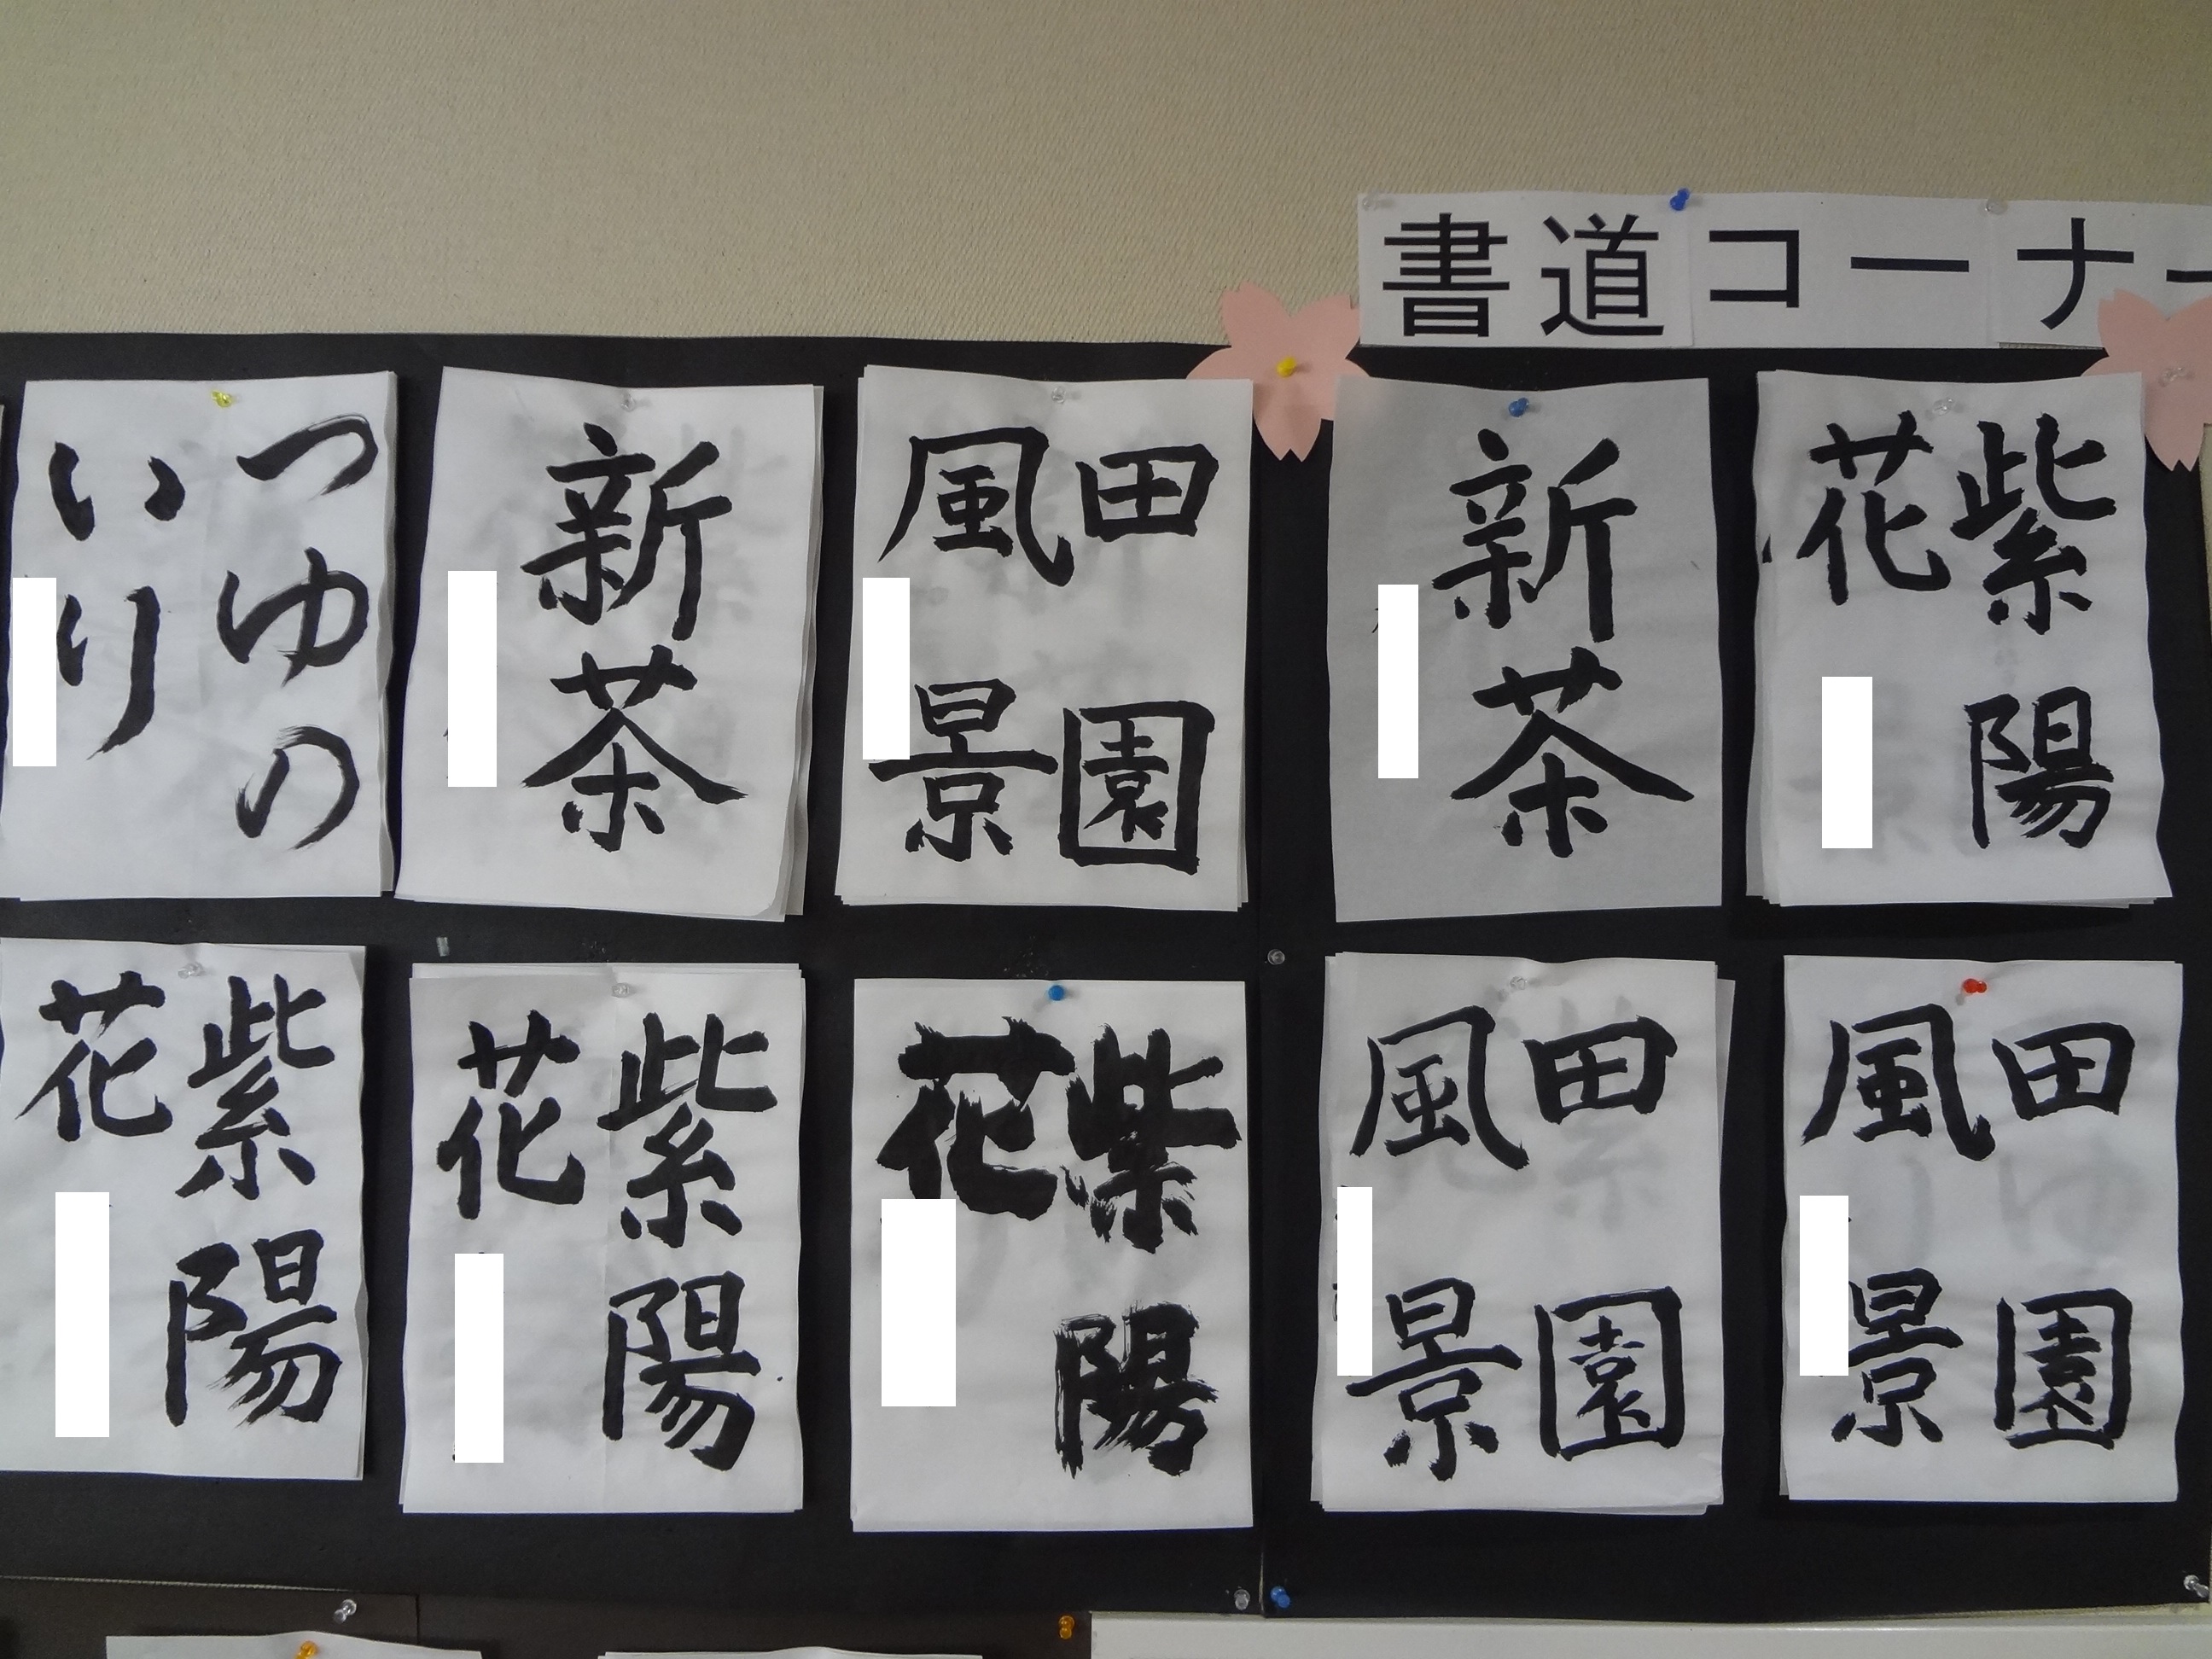 書道コーナー
紫陽
花
新茶
田園
風景
新茶
つゆの
いり
田園
風景
田園
風景
紫陽
花
紫陽
花
紫陽
花